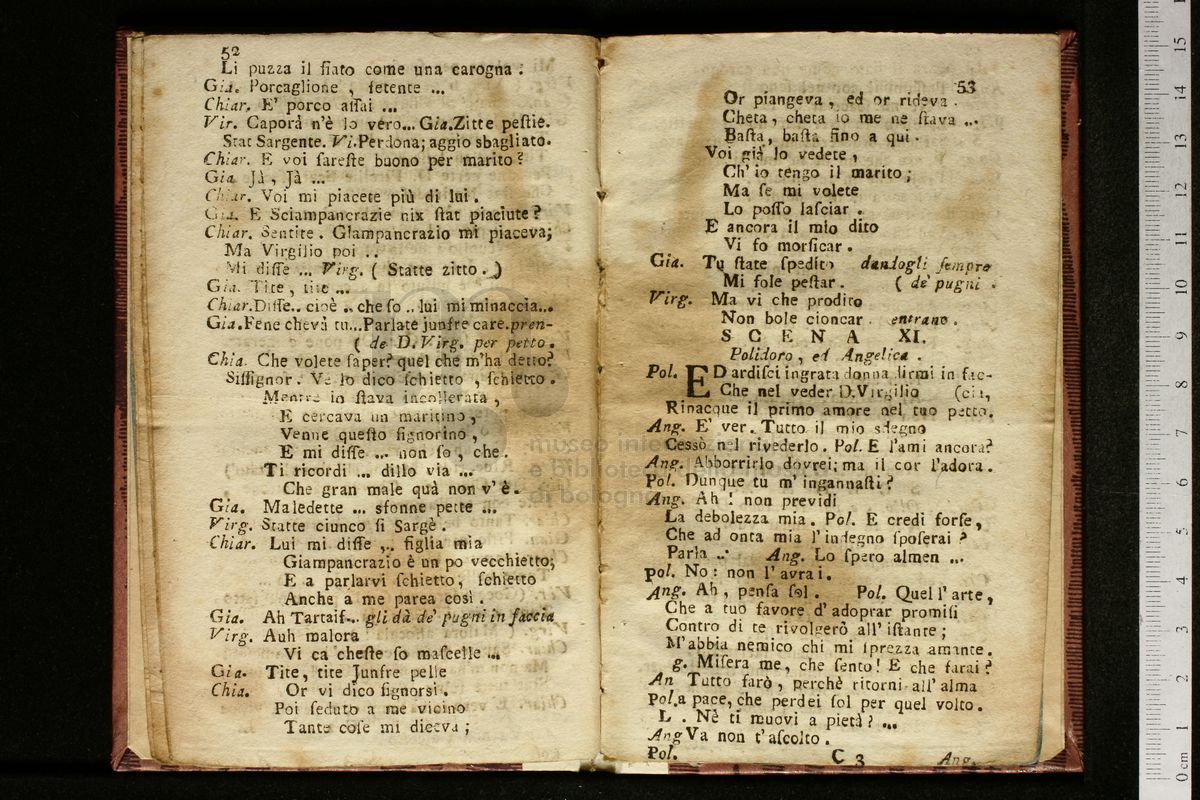 52
Li puzza il fiato come una carogna.
Gia. Porcaglione, fetente ...
Chiar. E' porco aſſai ...
Vir. Caporà n'è lo vero... Gia.Zitte peſtie.
Stat Sargente. Vi.Perdona; aggio sbagliato.
Chiar. E voi fareſte buono per marito?
Gia Jà, Jà ...
Chiar. Voi mi piacete più di lui.
Gia. E Sciampancrazie nix ſtat piaciute?
Chiar. Sentite. Giampancrazio mi piaceva;
Ma Virgilio poi ..
Mi diſſe ... Virg. ( Statte zitto. )
Gia. Tite, tite ...
Chiar.Diſſe.. cioè .. che ſo .. lui mi minaccia...
Gia.Fene chevà tu...Parlate junfre care.pren-
( de D. Virg. per petto.
Chia. Che volete ſaper? quel che m'ha detto?
Siſſignor. Ve lo dico ſchietto, ſchietto.
Mentre io ſtava incollerata,
E cercava un maritino,
Venne queſto ſignorino,
E mi diſſe ... non ſo, che.
Ti ricordi ... dillo via ...
Che gran male quà non v'è.
Gia. Maledette ... sfonne pette ...
Virg. Statte ciunco ſi Sargè.
Chiar. Lui mi diſſe ,. figlia mia
Giampancrazio è un po vecchietto;
E a parlarvi ſchietto, ſchietto
Anche a me parea così.
Gia. Ah Tartaif... gli dà de' pugni in faccia
Virg. Auh malora
Vi ca cheſte ſo maſcelle ...
Gia. Tite, tite Junfre pelle
Chia. Or vi dico ſignorsì.
Poi ſeduto a me vicino
Tante coſe mi diceva;
53
Or piangeva, ed or rideva.
Cheta, cheta io me ne ſtava ...
Baſta, baſta fino a qui.
Voi già lo vedete,
Ch' io tengo il marito;
Ma ſe mi volete
Lo poſſo laſciar.
E ancora il mio dito
Vi fo morſicar.
Gia. Tu ſtate ſpedito dandogli ſempre
Mi fole peſtar. ( de' pugni.
Virg. Ma vi che prodito
Non bole cioncar. entrano.
SCENA XI.
Polidoro, ed Angelica.
Pol. ED ardiſci ingrata donna dirmi in fac-
Che nel veder D.Virgilio (cia,
Rinacque il primo amore nel tuo petto.
Ang. E' ver. Tutto il mio sdegno
Cessò nel rivederlo. Pol. E l'ami ancora?
Ang. Abborrirlo dovrei; ma il cor l'adora.
Pol. Dunque tu m' ingannaſti?
Ang. Ah! non previdi
La debolezza mia. Pol. E credi forſe,
Che ad onta mia l'indegno ſpoſerai?
Parla ... Ang. Lo ſpero almen ...
Pol. No: non l'avrai.
Ang. Ah, penſa ſol. Pol. Quell'arte,
Che a tuo favore d'adoprar promiſi
Contro di te rivolgerò all'iſtante;
M'abbia nemico chi mi ſprezza amante.
g. Miſera me, che ſento! E che farai?
An Tutto farò, perchè ritorni all'alma
Pol.a pace, che perdei ſol per quel volto.
L . Nè ti muovi a pietà? ...
Ang Va non t'aſcolto.
Pol. C 3 Ang.
museo inte
e bibliote
di bologna
0 cm 1 2 3 4 5 6 7 8 9 10 11 12 13 14 15